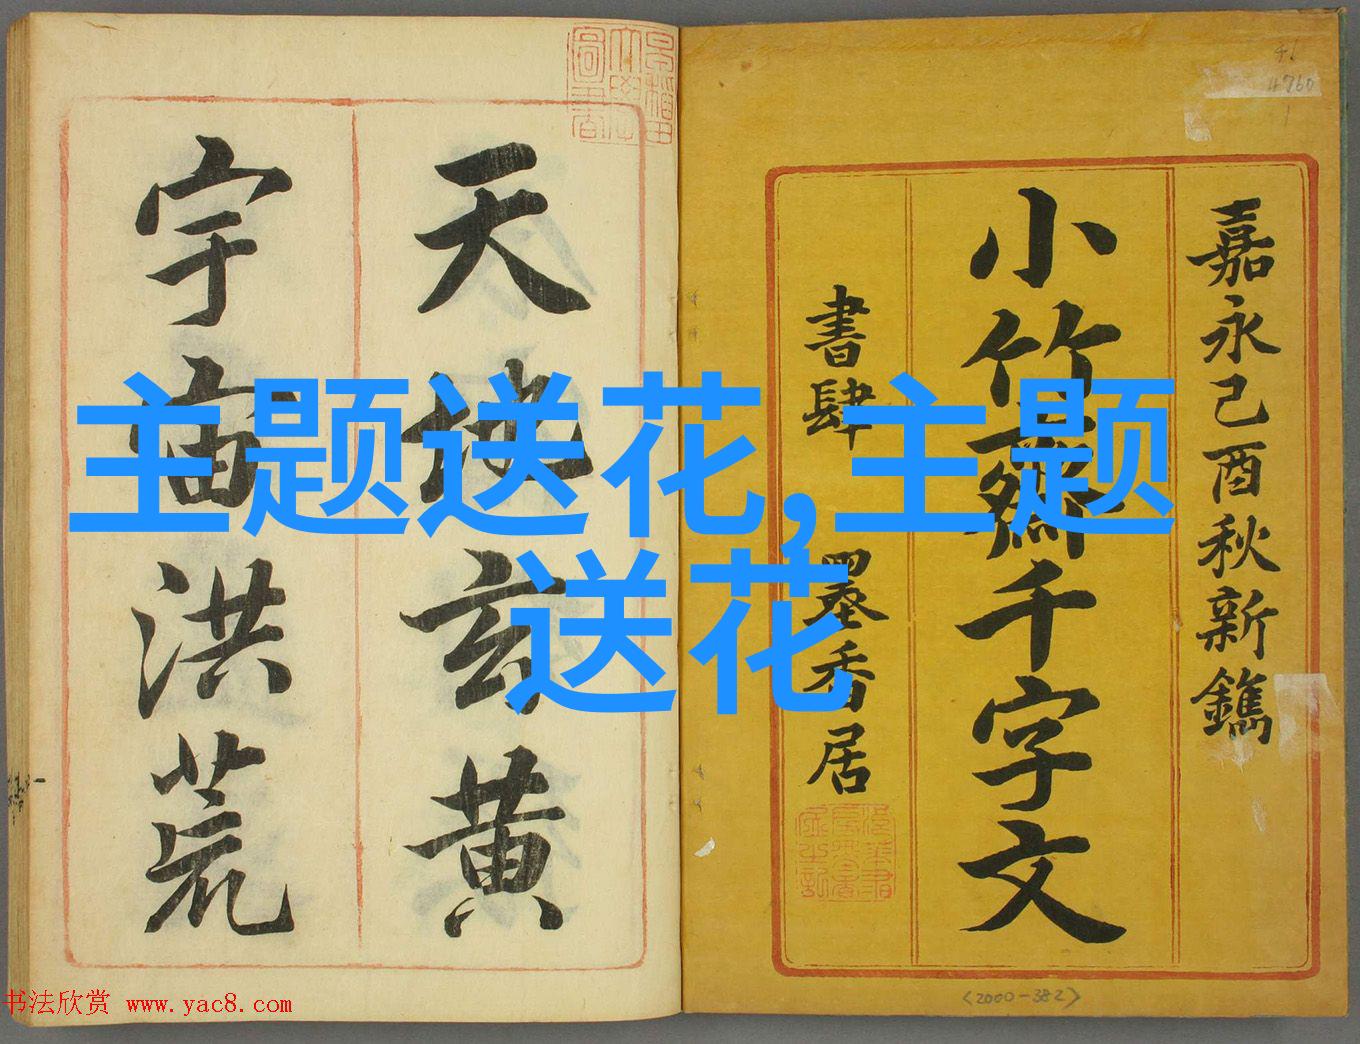 嘉永己酉秋新鐫
小竹齋千字文
書肆 墨香居
天地玄黄
宇宙洪荒
主题送花,主题
送花
46
4760
1
<2000-382>
书法欣赏 www.yac8.com